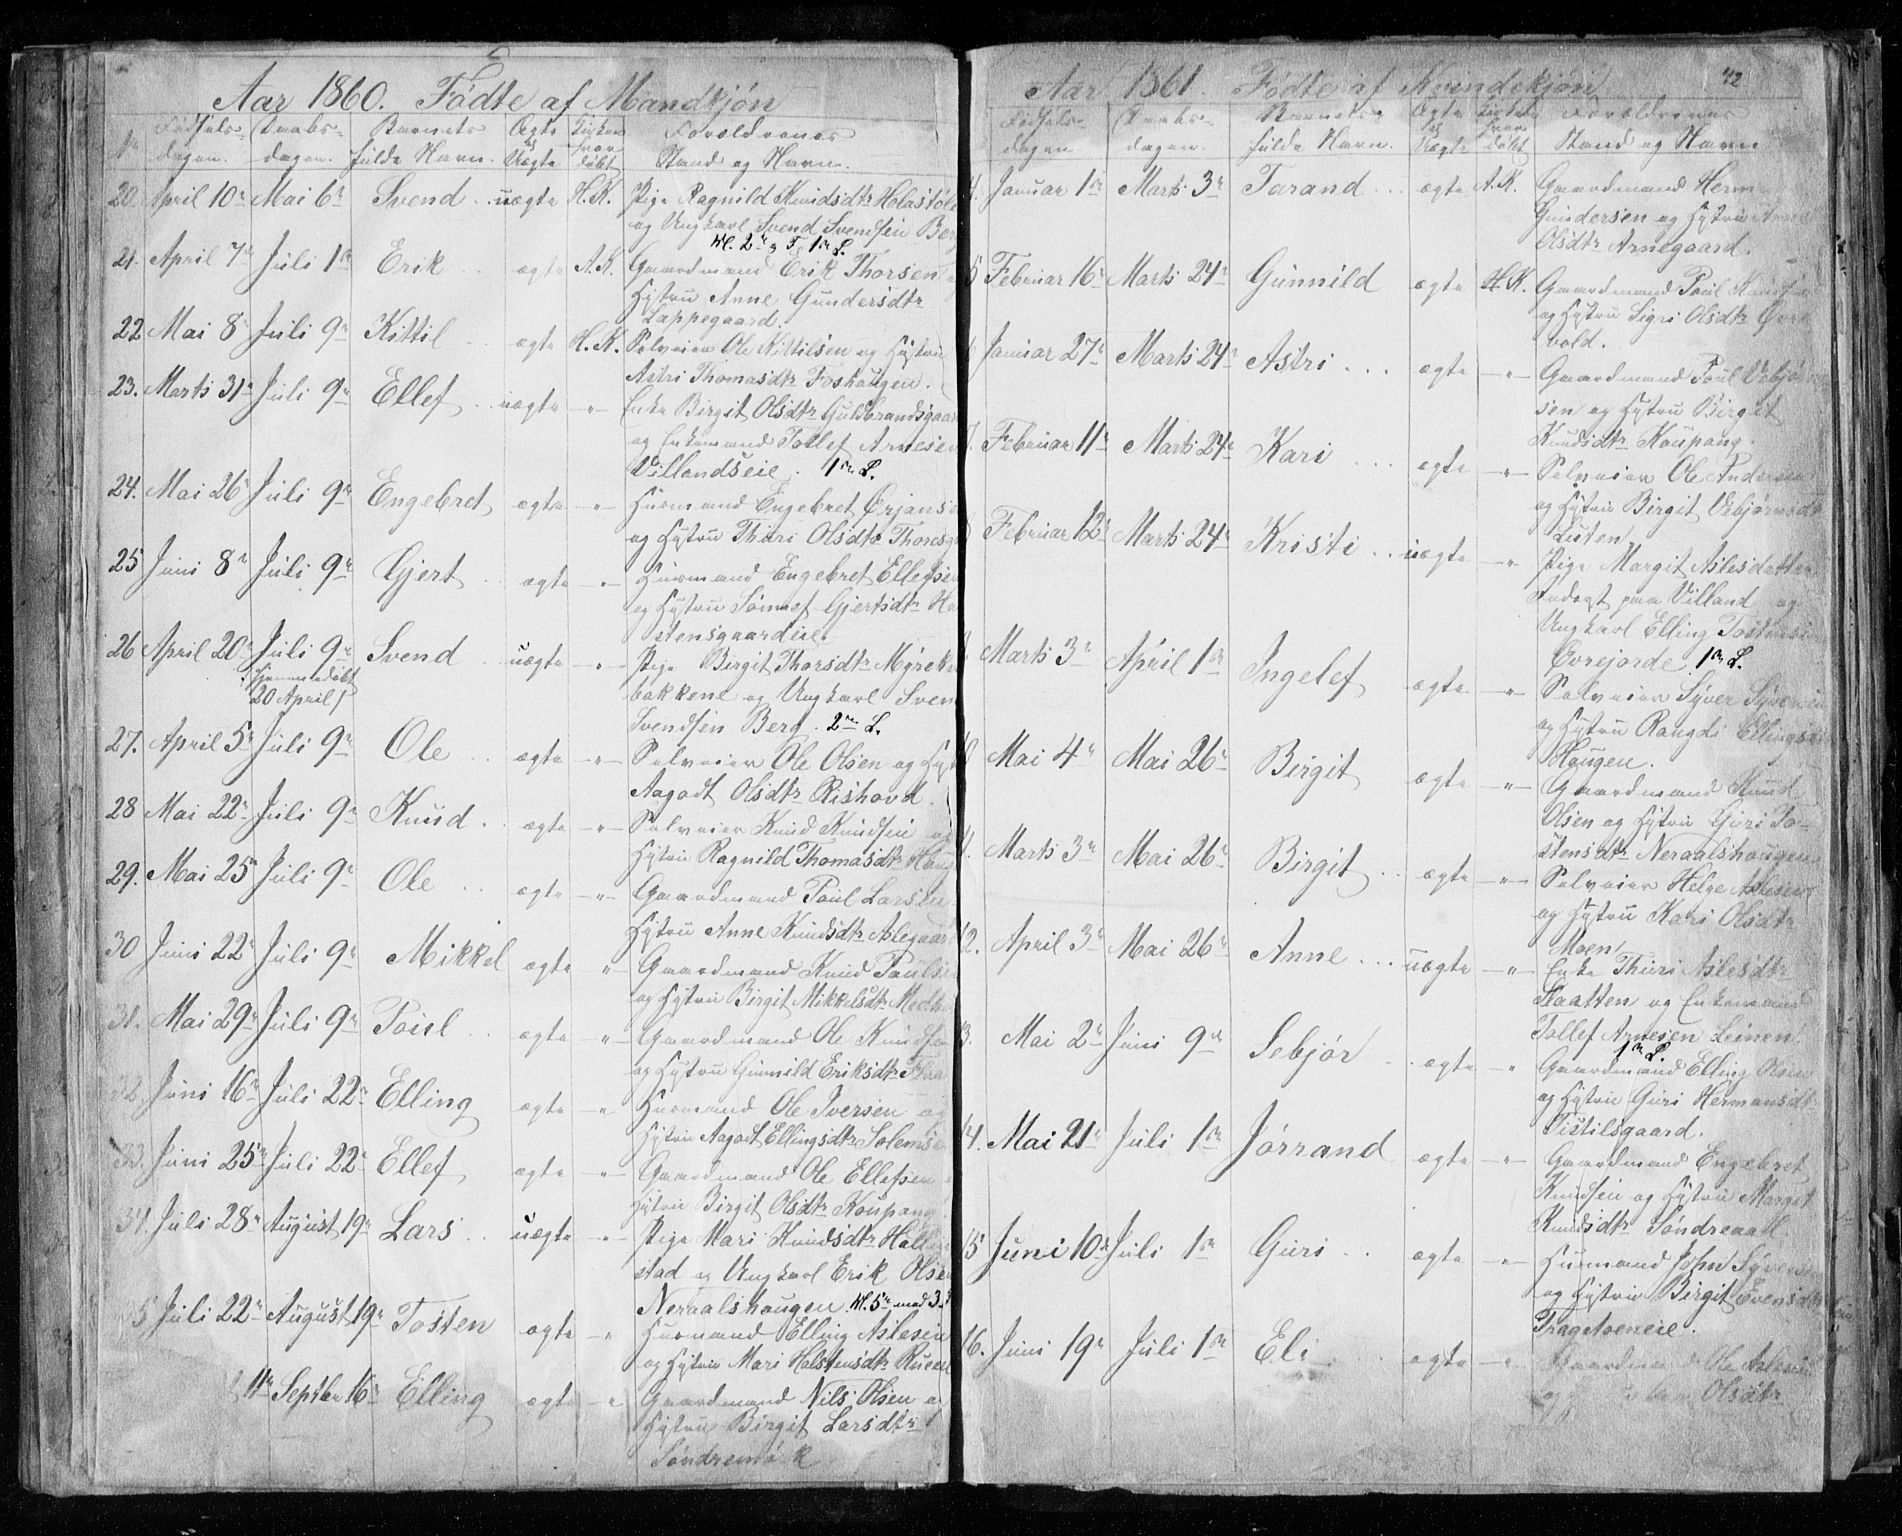 Aar 1860. Födte af Mandkjön
No Fødsels- dagen. Daabs- dagen. Barnets fulde Navn. Ægte el. Uægte Kirken hvor døbt Forældrenes Stand og Navn.
20. April 10de Mai 6te Svend .. uægte H.K. Pige Ragnild Knudsdtr Holastöle
og Ungkarl Svend Svendsen Berg
1ste L.
21. April 7de Juli 1ste Erik .. ægte A.K. Gaardmand Erik Thorsen
Hustru Anne Gundersdtr
Lappegaard.
22 Mai 8de Juli 9de Kittil .. ægte H.K. Selveier Ole Kittilsen og Hustru
Astri Thomasdtr Foshaugen.
23. Marts 31te Juli 9de Ellef .. uægte -"- Enke Birgit Olsdtr Guldbrandsgaar
og Enkemand Tollef Arnesen
Villandseie. 1ste L.
24. Mai 26de Juli 9de Engebret ægte -"- Husmand Engebret Örjanse
og Hustru Thuri Olsdtr
25 Juni 8de Juli 9de Gjert .. ægte -"- Husmand Engebret Ellefsen
og Hustru Sönnef Gjertsdtr
stensgaardeie
26 April 20de Juli 9de Svend .. uægte -"- Pige Birgit Thorsdtr Myrek
(Hjemmedöbt
20 April)
bakkene og Ungkarl Sven
Svendsen Berg. 2den L.
27. April 5te Juli 9de Ole .. ægte -"- Selveier Ole Olsen og Hust
Aagodt Olsdtr Rishovd.
28 Mai 22de Juli 9de Knud . ægte -"- Selveier Knud Knudsen og
Hustru Ragnild Thomasdtr Haug
29. Mai 25de Juli 9de Ole .. ægte -"- Gaardmand Paul Larsen
Hustru Anne Knudsdtr Aslegaar
30 Juni 22de Juli 9de Mikkel ægte " Gaardmand Knud Paulse
og Hustru Birgit Mikkelsdtr
31. Mai 29de Juli 9de Poul .. ægte -"- Gaardmand Ole Knudsen
og Hustru Gunnild Eriksdtr
32. Juni 16de Juli 22de Elling ægte -"- Husmand Ole Iversen og
Hustru Aagodt Ellingsdtr
33. Juni 25de Juli 22de Ellef ægte " Gaardmand Ole Ellefsen
Hustru Birgit Olsdtr Koupang.
34. Juli 28de August 19de Lars .. uægte -"- Pige Mari Knudsdtr Halle
stad og Ungkarl Erik Olsen
Neraalshaugen. M. 5te med 3
35 Juli 22de August 19de Tosten ægte -"- Husmand Elling Aslesen
og Hustru Mari Halstensdtr
11te Septbr 16de Elling ægte -"- Gaardmand Nils Olsen o
Hustru Birgit Larsdtr
Söndre
Aar 1861. Födte af Kvindekjön
42
Fødsels- dagen Daabs- dagen. Barnets fulde Navn. Ægte el. Uægte Kirken hvor døbt Forældrenes Stand og Navn
4. Januar 1ste Marts 3de Tarand .. ægte A.K. Gaardmand Herm
Gundersen og Hustru
Olsdtr Arnegaard.
5 Februar 16de Marts 24de Gunnild ægte H.K. Gaardmand Paul Knudsen
og Hustru Sigri Olsdtr Övre
vold.
6 Januar 27de Marts 24de Astri ... ægte -"- Gaardmand Paul Vebjörn
sen og Hustru Birgit
Knudsdtr Koupang.
7. Februar 11te Marts 24de Kari ... ægte -"- Selveier Ole Andersen
og Hustru Birgit Vebjörnsdtr
Luten.
Februar 12te Marts 24de Kristi .. uægte -"- Pige Margit Aslesdatter
Inderst paa Villand og
Ungkarl Elling Tostensen
Evrejorde. 1ste L.
Marts 3de April 1ste Ingelef ægte -"- Selveier Syver Syversen
og Hustru Rangdi Ellingsdtr
Haugen.
Mai 4de Mai 26de Birgit ægte -"- Gaardmand Knud
Olsen og Hustru Guri To-
stensdtr Neraalshaugen
Marts 3de Mai 26de Birgit .. ægte -"- Selveier Helge Aslesen
og Hustru Kari Olsdtr
Moen.
12. April 3de Mai 26de Anne ... uægte -"- Enke Thuri Aslesdtr
Slaatten og Enkemand
Tollef Arnesen Leinen.
1ste L.
13. Mai 2den Juni 9de Sebjör .. ægte -"- Gaardmand Elling Olsen
og Hustru Guri Hermansdtr
Tistilsgaard.
14. Mai 21de Juli 1ste Jörrand ægte -"- Gaardmand Engebret
Knudsen og Hustru Margit
Knudsdtr Söndreaall.
15 Juni 10de Juli 1ste Guri .. ægte -"- Husmand John Syversen
og Hustru Birgit Svensdtr
Tragetoeneie.
16. Juni 19de Juli 1ste Eli .. ægte -"- Gaardmand Ole Aslesen
og Olsdtr